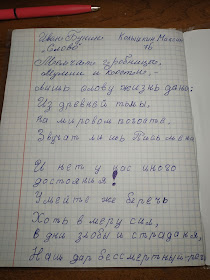 Иван Бунин Конышкин Максим
"Слово" 7Б
Молчат гробницы,
Мумии и кости, -
Лишь слову жизнь дана:
Из древней тьмы,
на мировом погосте,
Звучат лишь Письмена
И нет у нас иного
достояния!
Умейте же беречь
Хоть в меру сил,
в дни злобы и страданья,
Наш дар бессмертный - речь